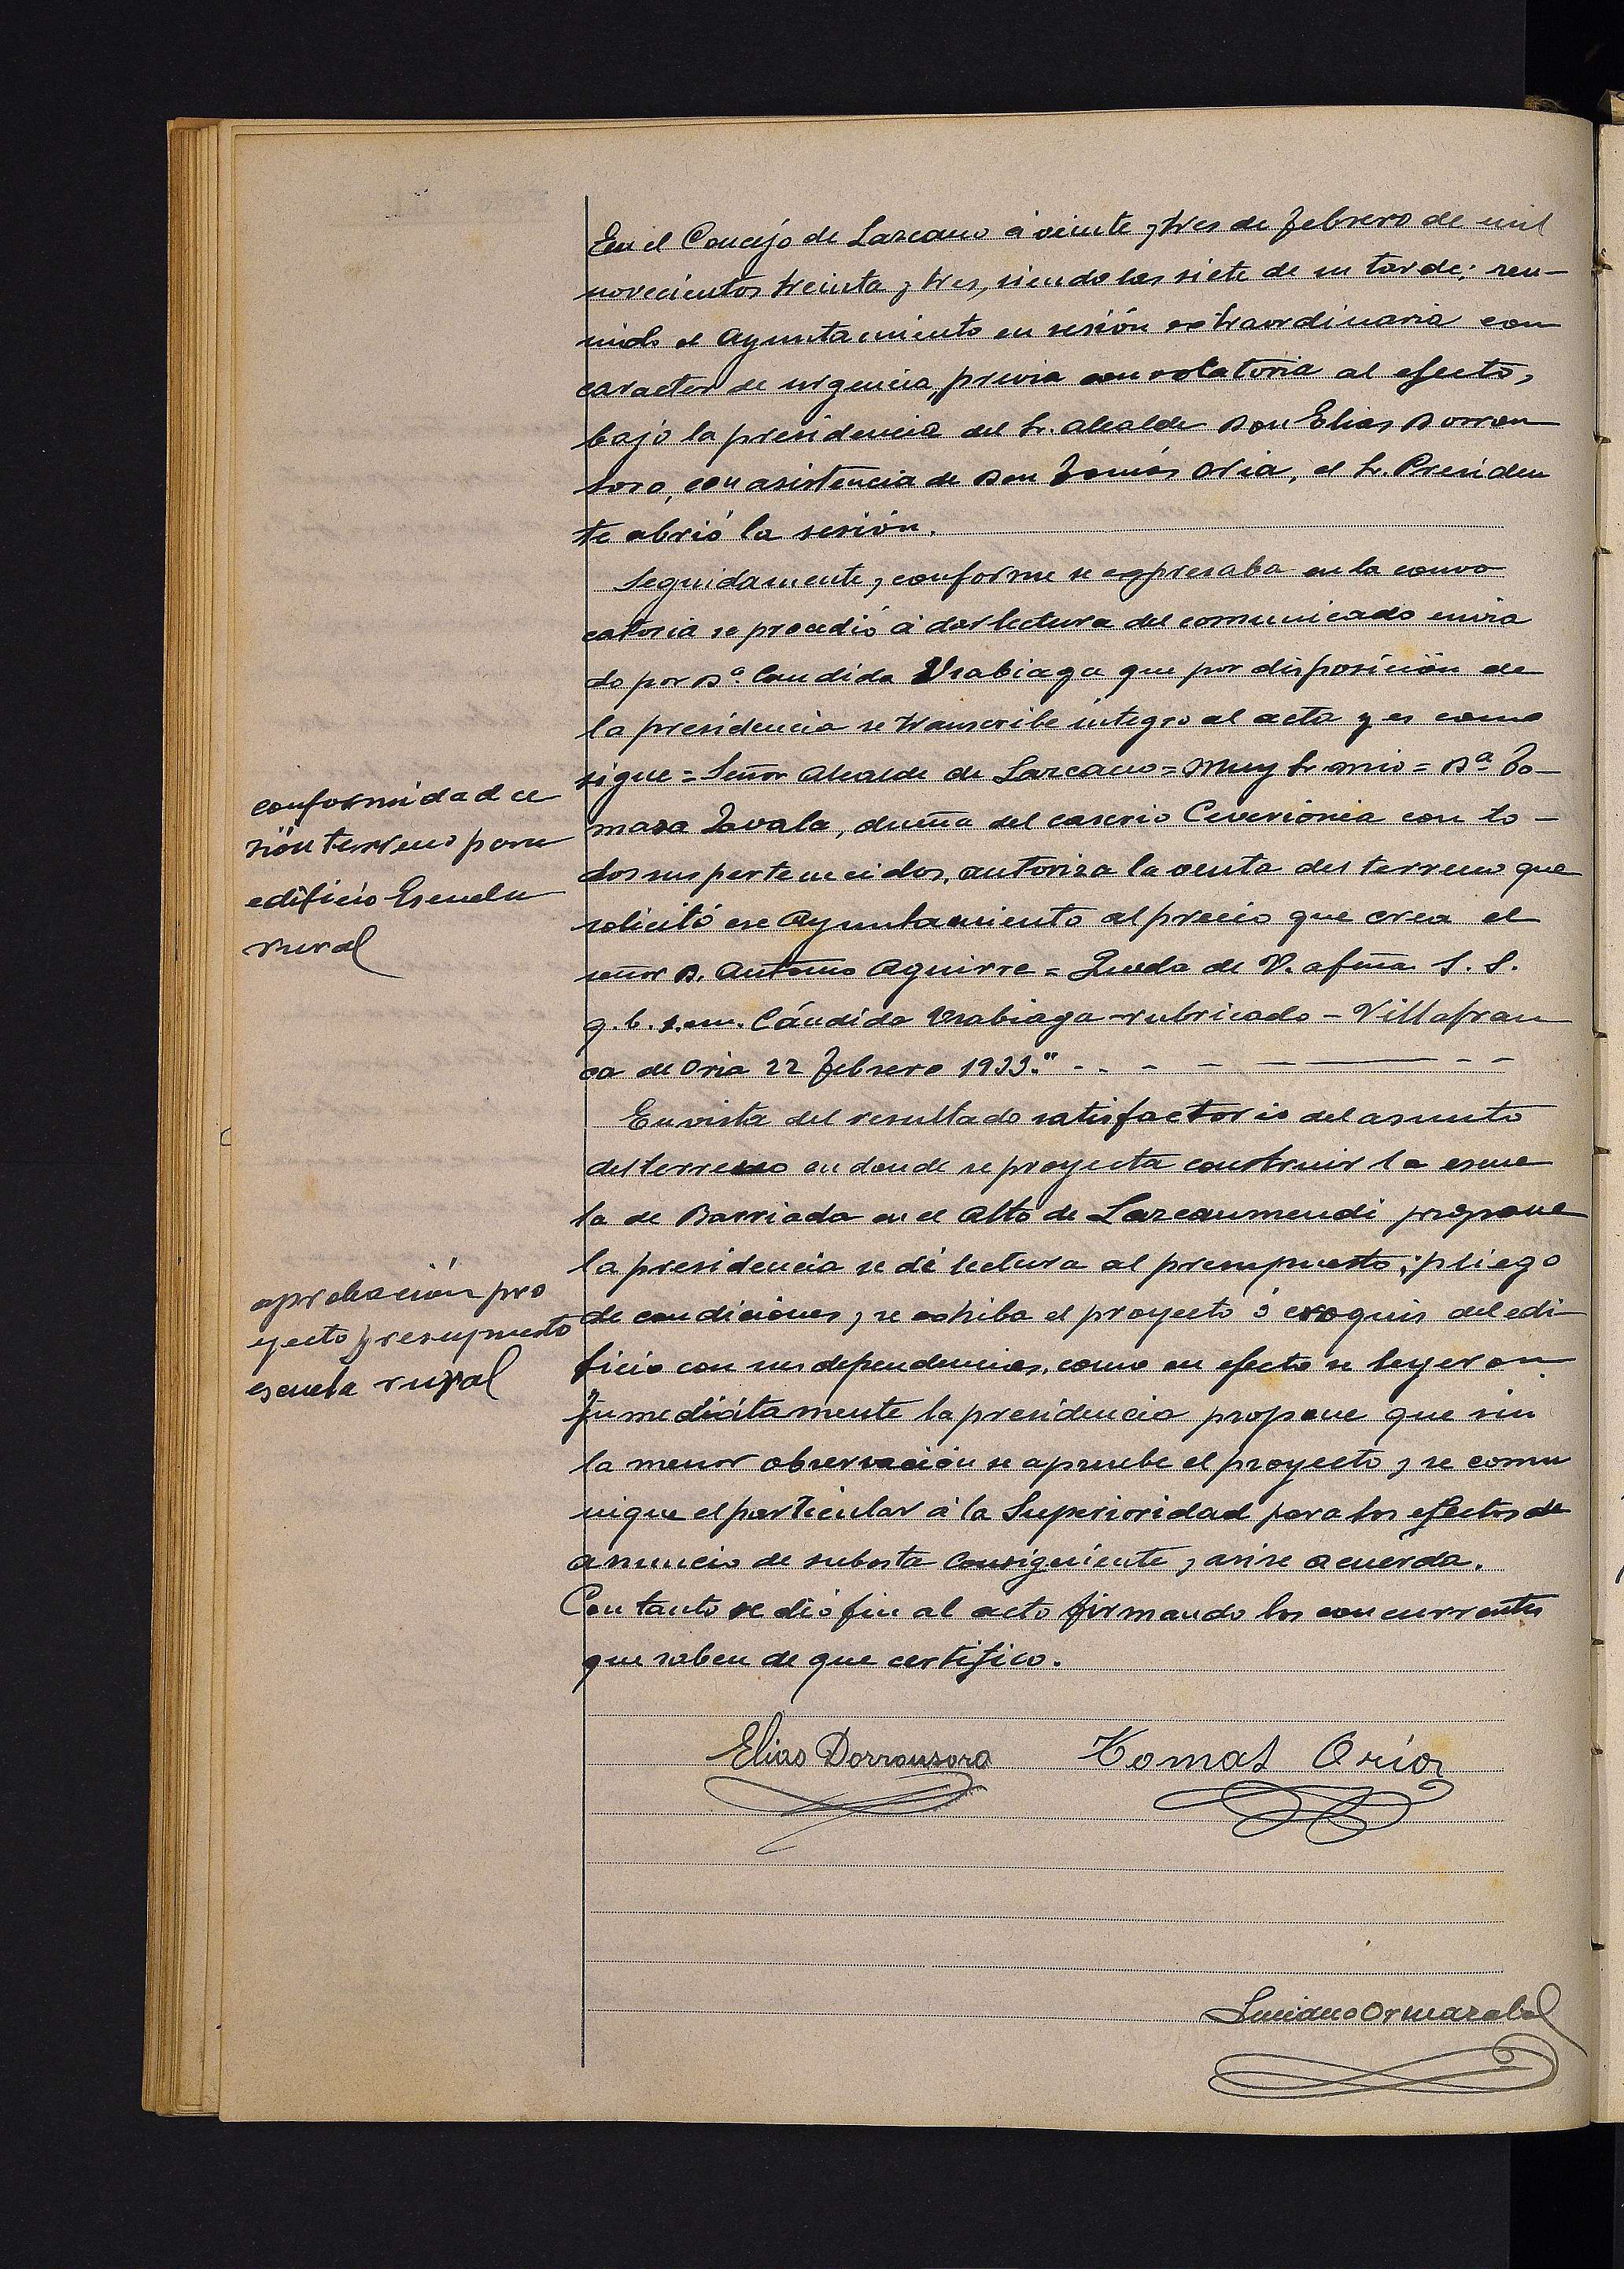 En el Concejo de Lazcano á veinte y tres de febrero de mil
novecientos treinta y tres, siendo las siete de su tarde; reu-
nido el Ayuntamiento en sesión extraordinaria con
caracter de urgencia, previa convocatoria al efecto,
bajo la presidencia del Sr. Alcalde Don Elias Dorron
soro, con asistencia de Don Tomás Oria, el Sr. Presiden
te abrió la sesión.
Seguidamente, conforme se expresaba en la convo
catoria se procedió á dar lectura del comunicado envia
do por Dª. Candida Urabiaga que por disposición de
la presidencia se transcribe integro al acta y es como
sigue = Señor Alcalde de Lazcano = Muy Sr mio = Dª To-
conformidad ce
masa Zavala, dueña del caserio con to-
sión terreno para
dos sus pertenecidos, autoriza la venta del terreno que
edificio Escuela
solicitó ese Ayuntamiento al precio que crea el
rural
señor D. Antonio Aguirre = Queda de V. afma S. S.
q. b. s. m. Cándida Urabiaga - rubricado - Villafran
ca de Oria 22 febrero 1933."
En vista del resultado satisfactorio del asunto
del terreno en donde se proyecta construir la escue
la de Barriada en el Alto de Lazcaumendi propone
la presidencia se dé lectura al presupuesto; pliego
aprobación pro
de condiciones, y se exhiba el proyecto ó croquis del edi-
yecto presupuesto
ficio con sus dependencias, como en efecto se leyeron.
escuela rural
Inmediátamente la presidencia propone que sin
la menor observación se apruebe el proyecto y se comu
nique el particular á la Superioridad para los efectos de
anuncio de subasta consiguiente, y asi se acuerda.
Con tanto se dió fin al acto firmando los concurrentes
que saben de que certifico.
Elias Dorronsoro Tomas Oria
Luciano Ormazabal